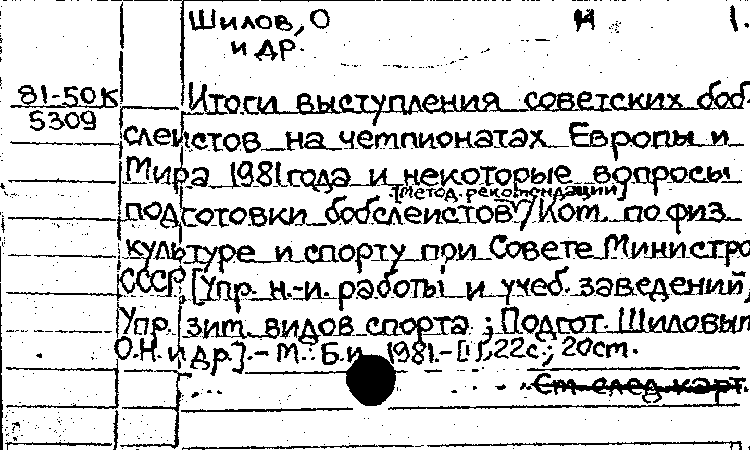 Шилов, О И 1.
и др.
81-50К Итоги выступления советских боб-
5309
слеистов на чемпионатах Европы и
Мира 1981 года и некоторые вопросы
[Метод. рекомендации]
подготовки бобслеистов / Ком. по физ.
культуре и спорту при Совете Министро
СССР, [Упр. н.-и. работы и учеб. заведений,
Упр. зим. видов спорта ; Подгот. Шиловым
О.Н. и др.].- М. : Б.и. 1981.- [1], 22с.; 20см.
См. след. карт.